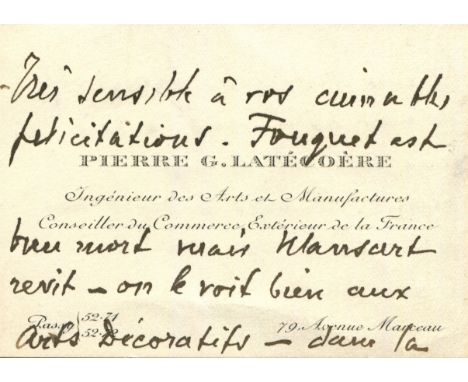 Très sensible à vos aimables
felicitations. Fouquet est
PIERRE G. LATÉCOÈRE
Ingénieur des Arts et Manufactures
Conseiller du Commerce Extérieur de la France
bien mort mais Mansart
revit – on le voit bien aux
Passy 52-71
52-72
79, Avenue Marceau
Arts Décoratifs – dans la